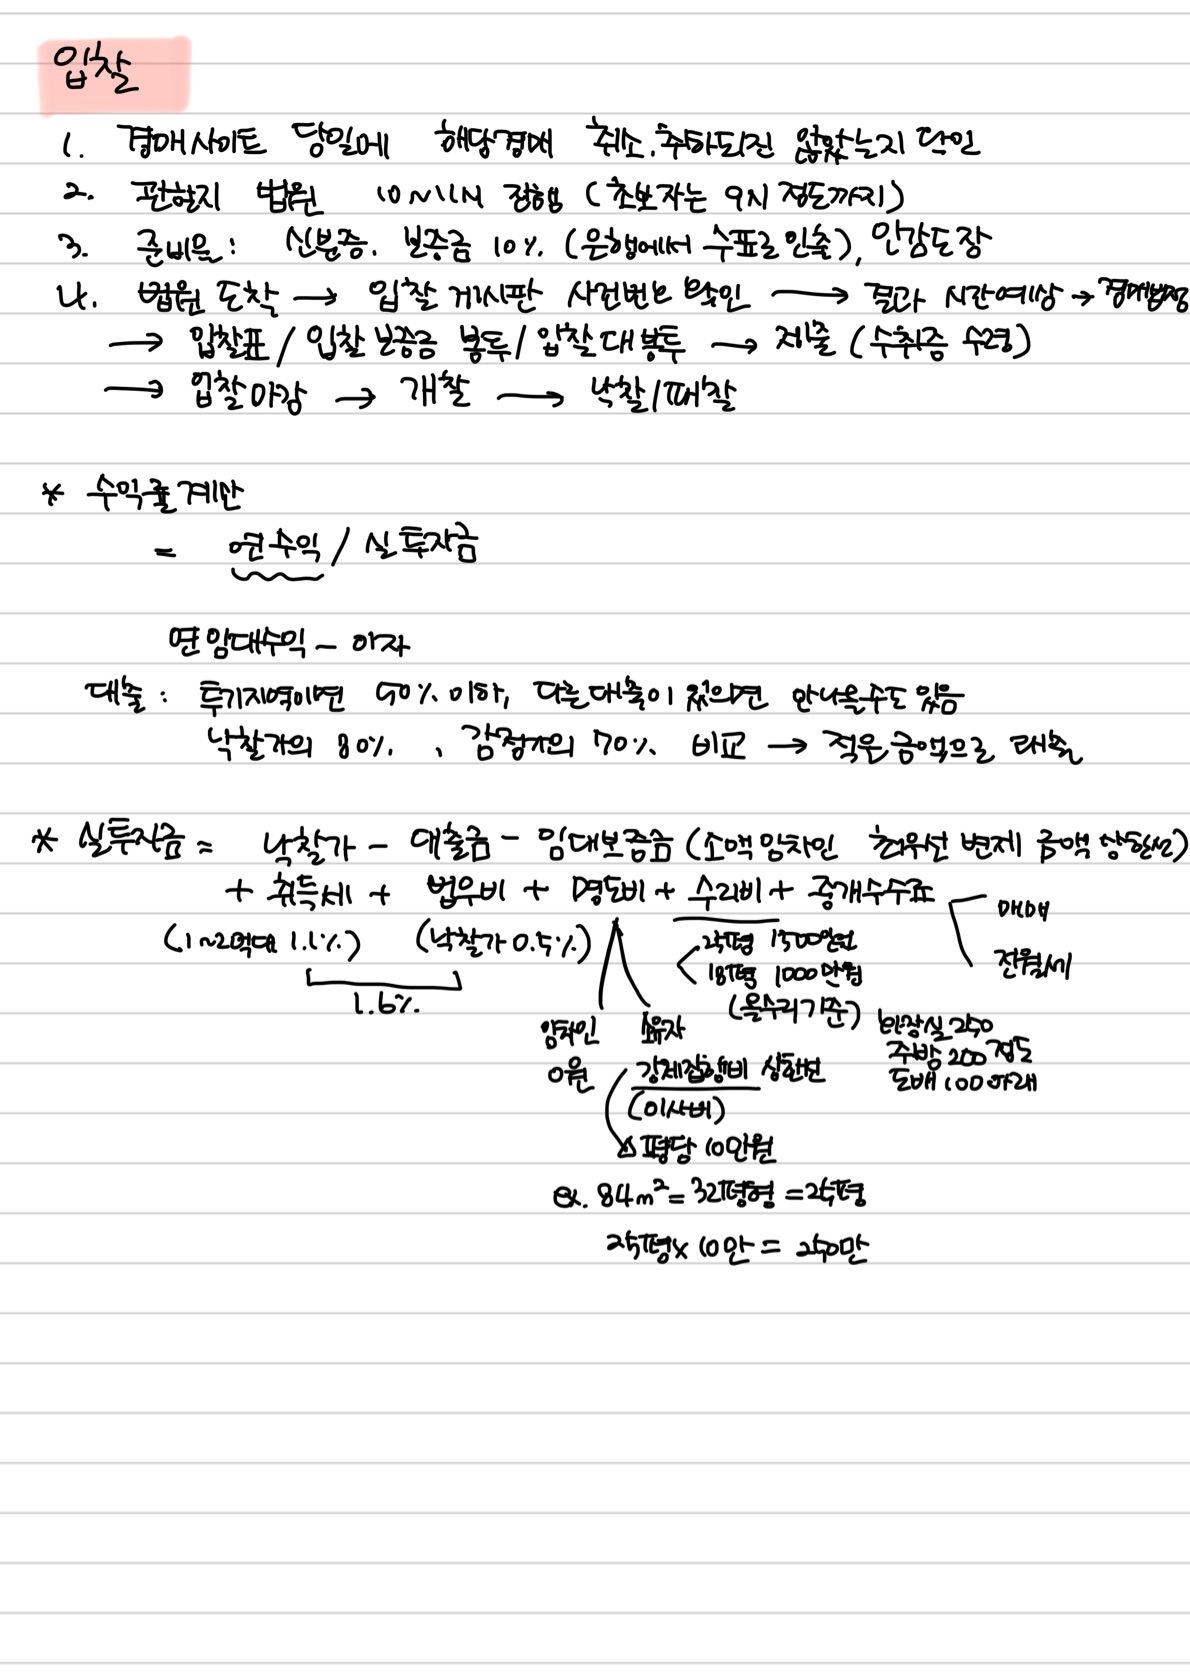 입찰
1. 경매사이트 당일에 해당경매 취소.취하되진 않았는지 확인
2. 관할지 법원 10~11시 진행 (초보자는 9시 정도까지)
3. 준비물: 신분증. 보증금 10% (은행에서 수표로 인출), 인감도장
4. 법원 도착 → 입찰 게시판 사건번호 확인 → 결과 시간예상 → 경매법정
→ 입찰표 / 입찰 보증금 봉투 / 입찰 대봉투 → 제출 (수취증 수령)
→ 입찰마감 → 개찰 → 낙찰/패찰
* 수익률계산
= 연수익 / 실투자금
연임대수익 - 이자
대출: 투기지역이면 50% 이하, 다른대출이 있으면 안나올수도 있음
낙찰가의 80%, 감정가의 70% 비교 → 적은금액으로 대출
* 실투자금 = 낙찰가 - 대출금 - 임대보증금 (소액임차인 최우선 변제 금액 상한선)
+ 취득세 + 법무비 + 명도비 + 수리비 + 중개수수료
(1~2억대 1.1%) (낙찰가 0.5%)
1.6%
25평 1500만원
18평 1000만원
(올수리기준)
매매
전월세
임차인 소유자
0원 강제집행비 상한선
(이사비)
평당 10만원
ex. 84m²=32평형=25평
25평×10만=250만
화장실 250
주방 200 정도
도배 100 아래